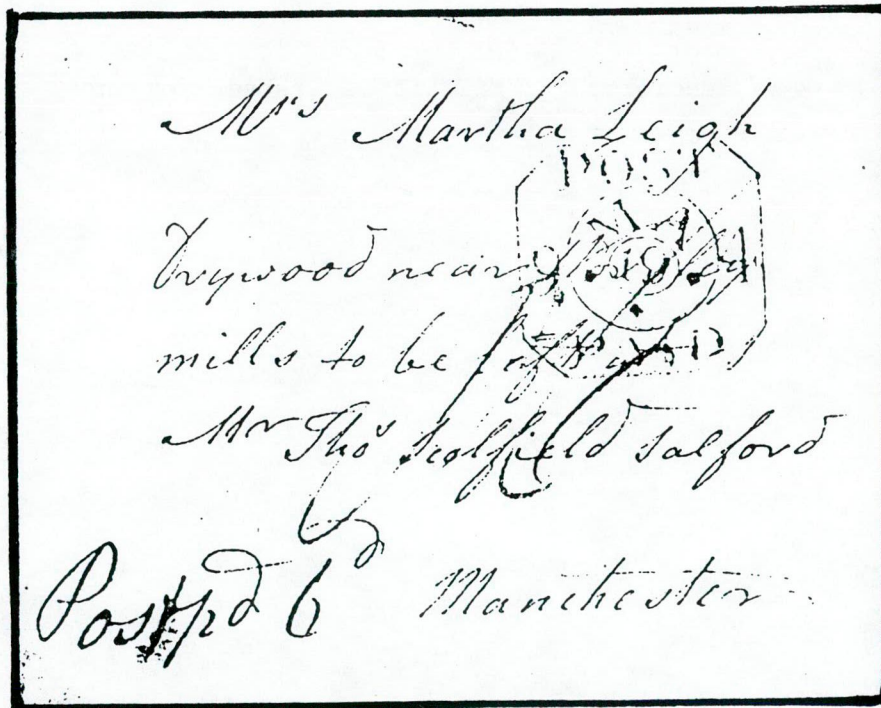 Mrs Martha Leigh
POST
Drywood near
mills to be left at
PAID
Mr Thos Scolfield Salford
Postpd 6d Manchester